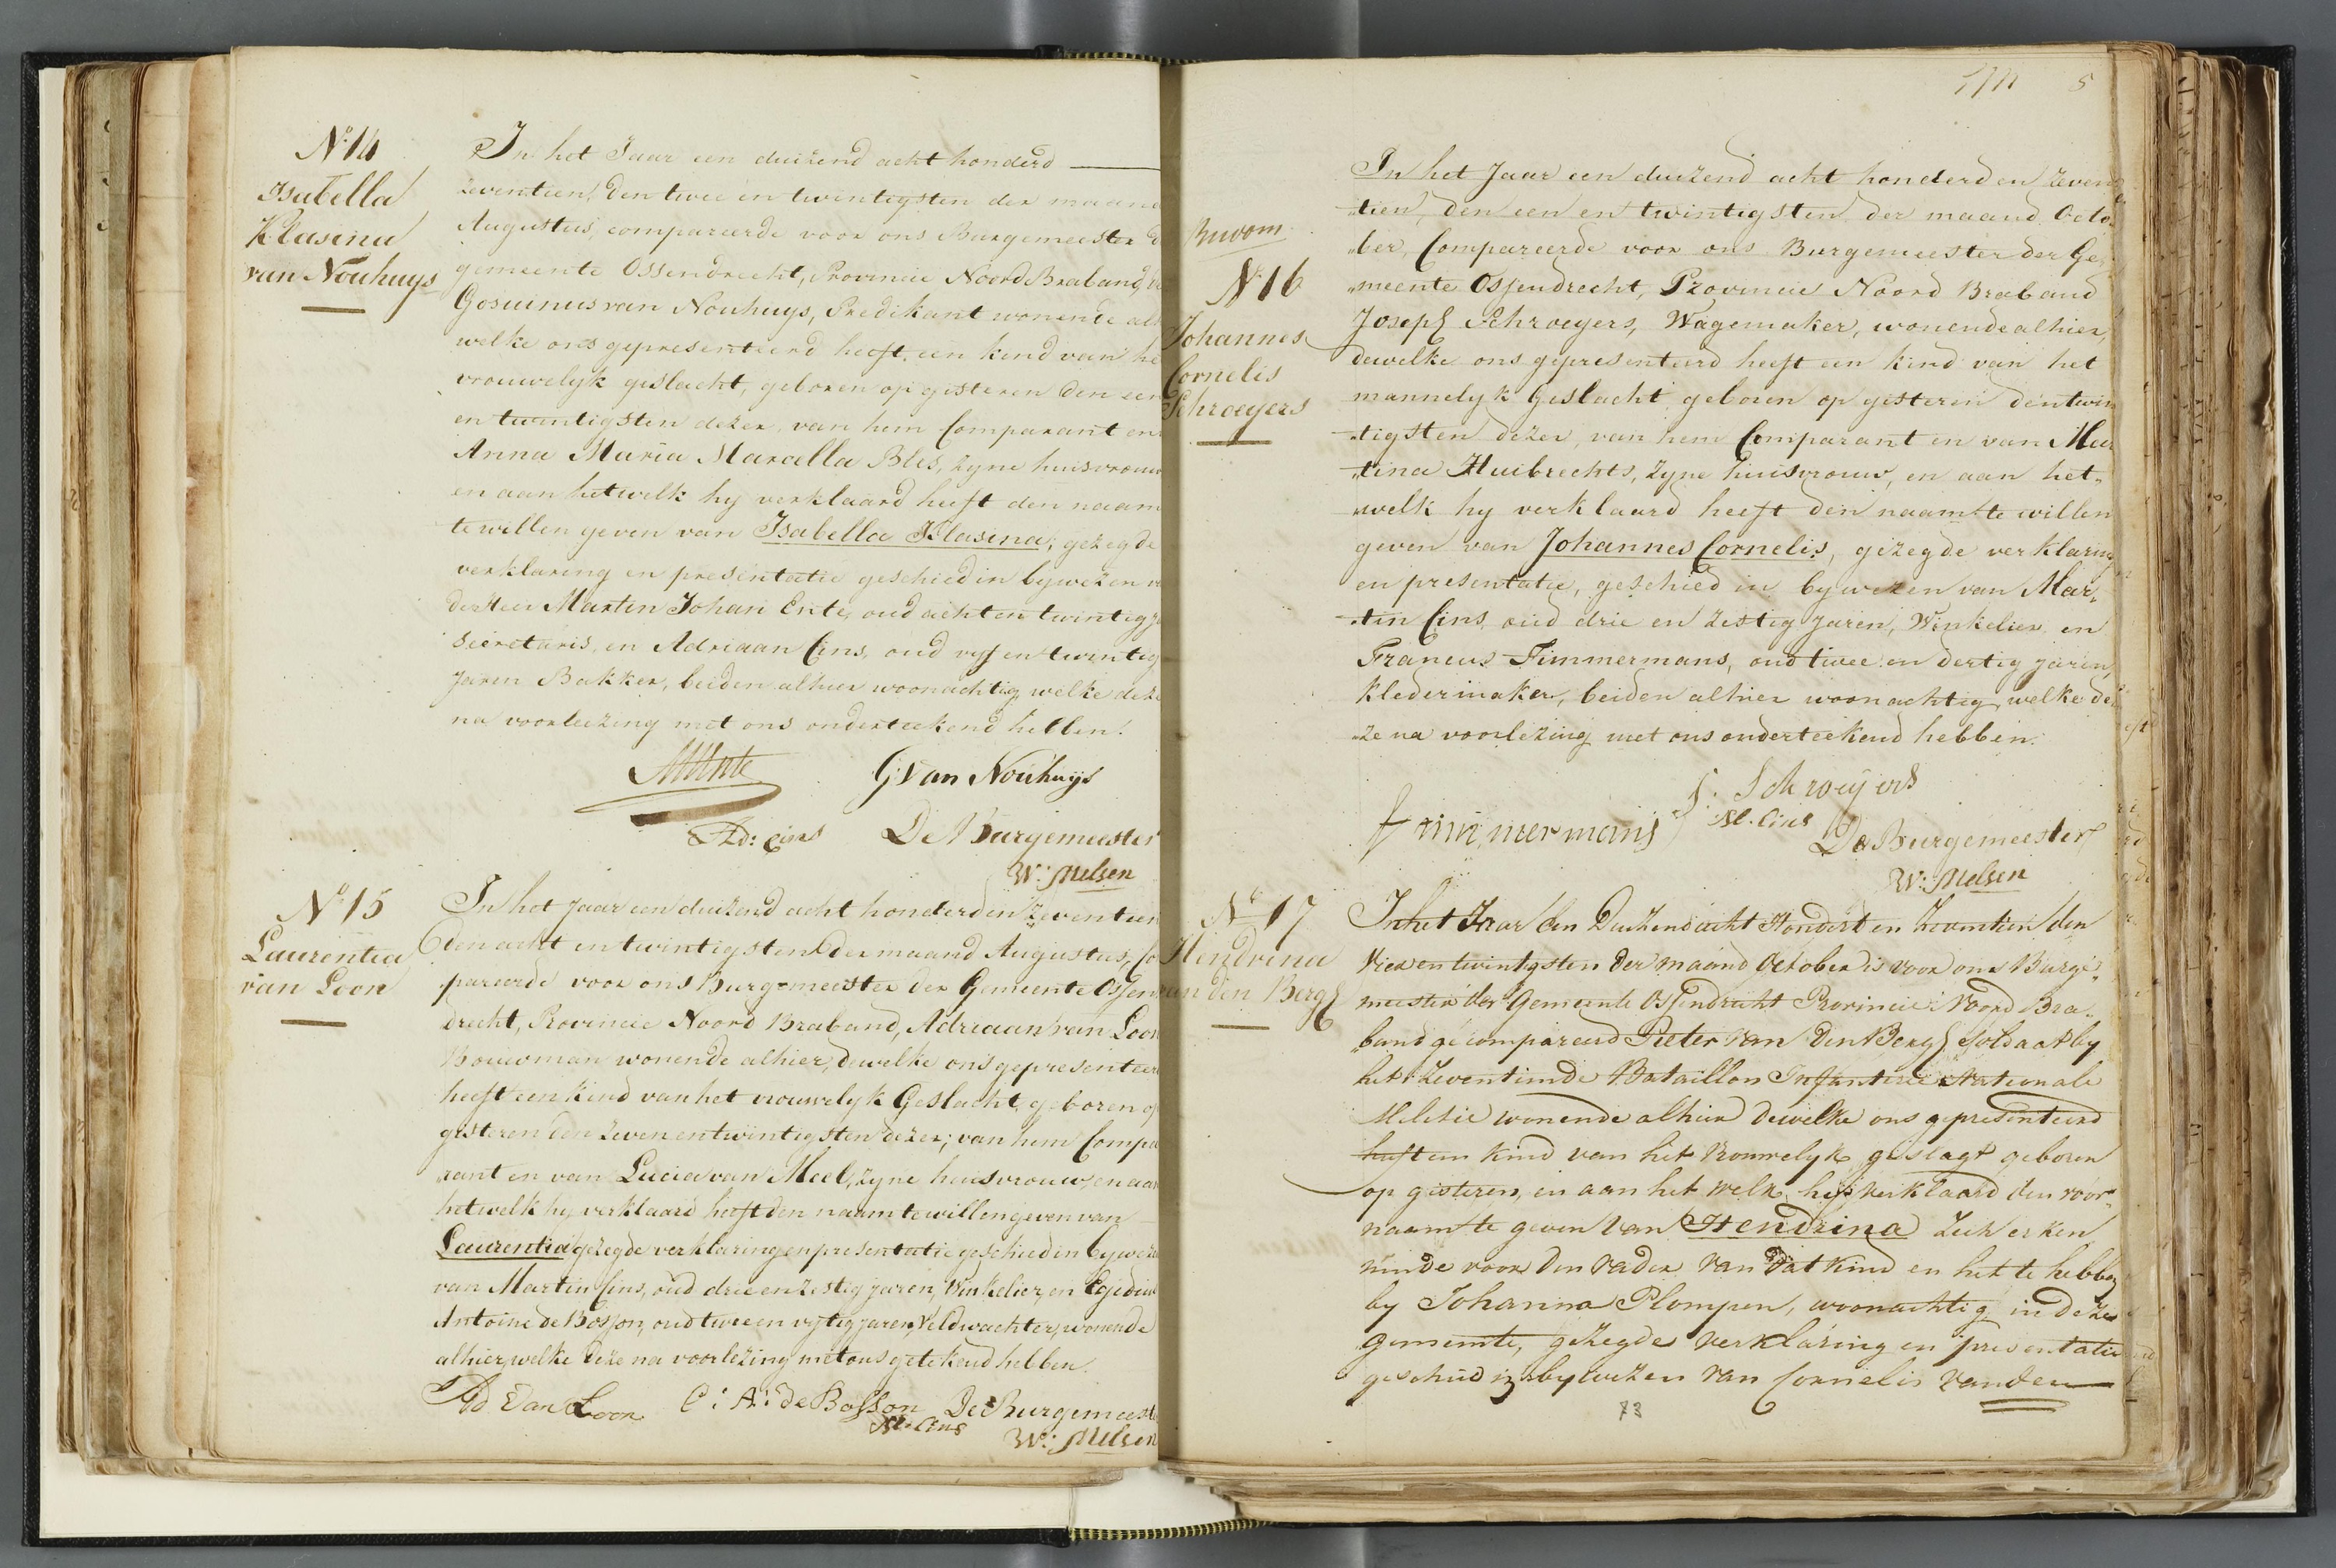 N.º 14
Isabella
Klasina
van Nouhuys
In het Jaar een duizend acht honderd
zeventien, den twee en twintigsten der maand
Augustus, compareerde voor ons Burgemeester d
gemeente Ossendrecht, Provincie Noord Braband,
Gosuinus van Nouhuys, Predikant wonende alh
welke ons gepresenteerd heeft een kind van he
vrouwelyk geslacht, geboren op gisteren den een
en twintigsten dezer, van hem Comparant en
Anna Maria Marcella Bles, zyne huisvrouw
en aan hetwelk hy verklaard heeft den naam
te willen geven van Isabella Klasina; gezegde
verklaring en presentatie geschied in bywezen v
der Heer Martin Johan Ente, oud acht en twintig j
secretaris, en Adriaan Cins, oud vyf en twintig
jaren Bakker, beiden alhier woonachtig welke deze
na voorleezing met ons onderteekend hebben.
MJEnte
G: Van Nouhuys
Ad: Cins
De Burgemeester
W: Melsen
N.º 15
Laurentia
van Loon
In het Jaar een duizend acht honderd en zeventien
den acht en twintigsten der maand Augustus, Co
pareerde voor ons Burgemeester der Gemeente Ossen
drecht, Provincie Noord Braband, Adriaan van Loon
Bouwman wonende alhier, dewelke ons gepresenteer
heeft een kind van het vrouwelyk Geslacht, geboren op
gisteren den zeven en twintigsten dezer; van hem Compa
rant en van Lucia van Meel, zyne huisvrouw, en aan
hetwelk hy verklaard heeft den naam te willen geven van
Laurentia gezegde verklaring en presentatie geschied in byweze
van Martin Cins, oud drie en zestig jaren, Winkelier, en Egidius
Antoine de Bosson, oud twee en vytig jaren, Veldwachter, wonende
alhier, welke deze na voorlezing met ons getekend hebben.
Ad Van Loon
C: A: de Bosson
De Burgemeeste
M. Cins
W: Melsen
5
N.º 16
Johannes
Cornelis
Schroeyers
In het Jaar een duizend acht honderd en zeven
„tien, den een en twintigsten der maand Octo„
„ber, Compareerde voor ons Burgemeester der Ge„
„meente Ossendrecht, Provincie Noord Braband
Joseph Schroeyers, Wagemaker, wonende alhier,
dewelke ons gepresenteerd heeft een kind van het
mannelyk Geslacht geboren op gisteren den twin
„tigsten dezer, van hem Comparant en van Mar
„tina Huibrechts, zyne huisvrouw, en aan het„
„welk hy verklaard heeft den naam te willen
geven van Johannes Cornelis, gezegde verklaring
en presentatie, geschied in bywezen van Mar„
„tin Cins, oud drie en zestig jaren, Winkelier en
Francus Timmermans, oud twee en dertig jaren,
kledermaker, beiden alhier woonachtig, welke de
„ze na voorlezing met ons onderteekend hebben.
J: Schroeyers
F timmermans
M. Cins
De Burgemeester
W: Melsen
N.º 17
Hendrina
van den Bergh
In het Jaar Een Duizend acht Hondert en Zeventien den
Vier en twintigsten der maand October is voor ons Burge„
meester der Gemeente Ossendrecht Provincie Noord Bra„
„band gecompareerd Pieter Van Den Bergh Soldaat by
het Zeventiende Bataillon Infanterie Nationale
Militie wonende alhier dewelke ons gepresenteerd
heeft een Kind van het Vrouwelyk geslagt geboren
op gisteren, en aan het welk hy verklaard den voor„
naam te geven Van Hendrina Zich erken
nende voor Den Vader Van Dat Kind en het te hebben
by Johanna Plompen, woonachtig in deze
gemeente, gezegde verklaring en presentatie
geschied in bywezen Van Cornelis Van den
73